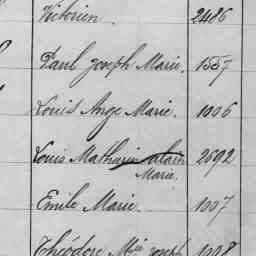 Victorien. 2486
Paul Joseph Marie. 1557
Louis Ange Marie. 1006
Louis Mathurin Alain 2692
Marie.
Emile Marie. 1007
Théodore Mie Joseph 1008